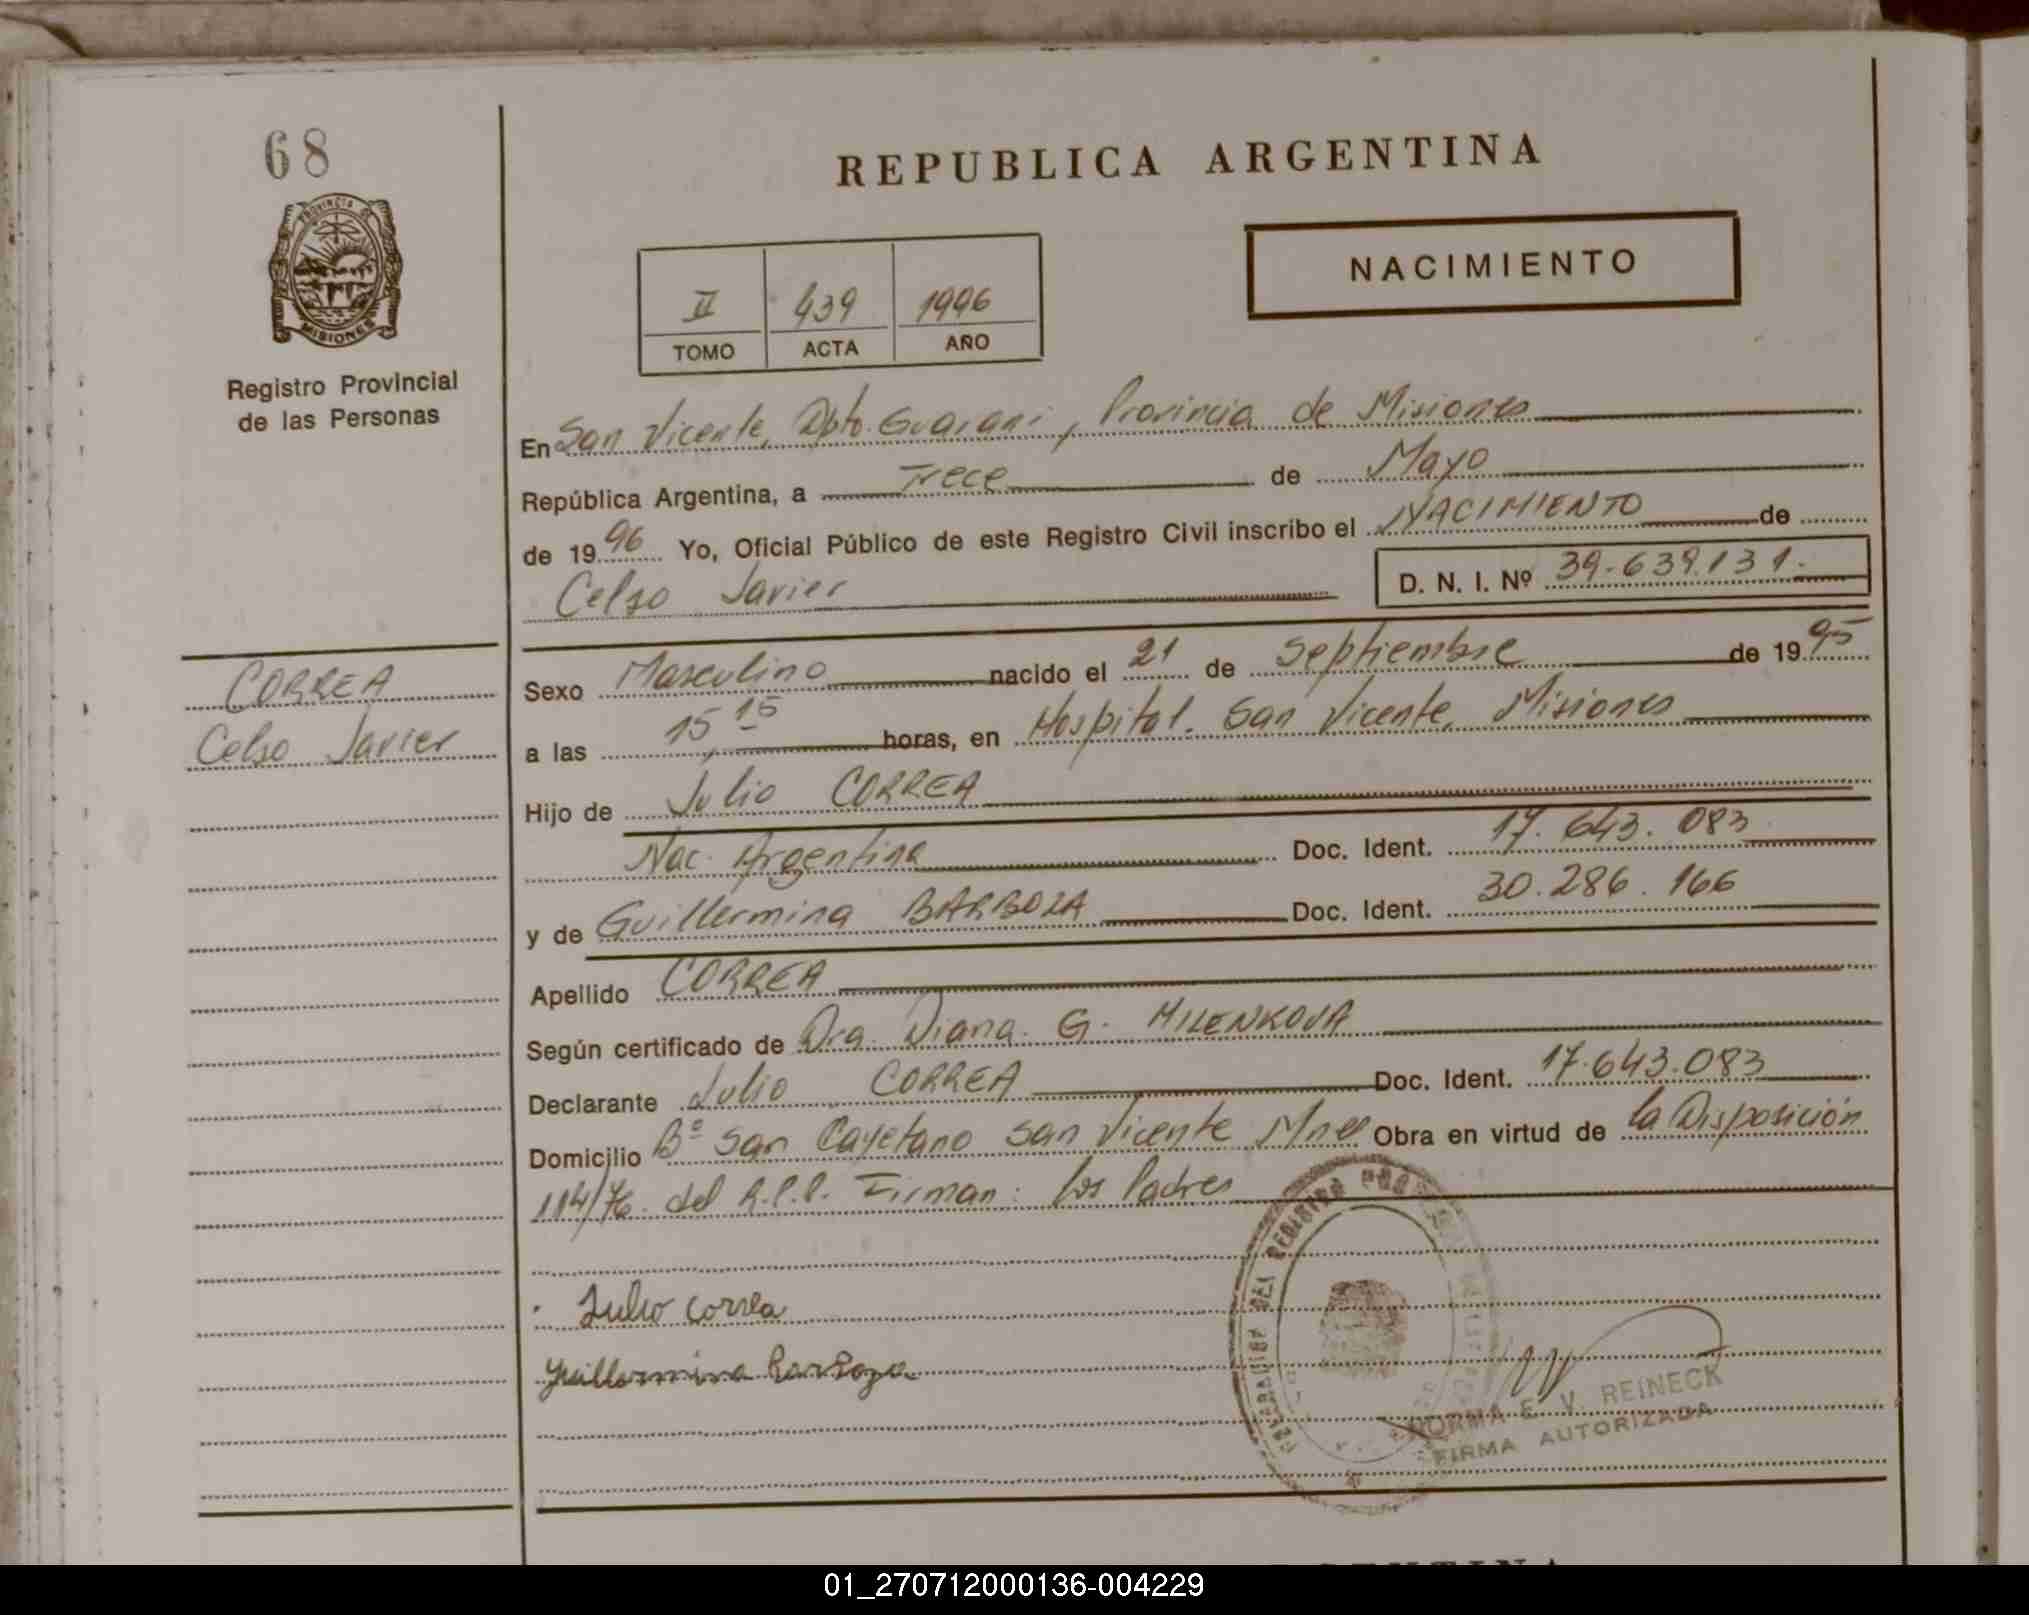 68
REPUBLICA ARGENTINA
PROVINCIA DE
MISIONES
NACIMIENTO
II 439 1996
TOMO ACTA AÑO
Registro Provincial
de las Personas
En San Vicente, Dpto. Guarani, Provincia de Misiones
República Argentina, a Trece de Mayo
de 1996 Yo, Oficial Público de este Registro Civil inscribo el NACIMIENTO de
Celso Javier D. N. I. Nº 39.639.131.
CORREA
Celso Javier
Sexo Masculino nacido el 21 de Septiembre de 1995
a las 15,15 horas, en Hospital. San Vicente, Misiones
Hijo de Julio CORREA
Nac. Argentina Doc. Ident. 17.643.083
y de Guillermina BARBOZA Doc. Ident. 30.286.166
Apellido CORREA
Según certificado de Dra. Diana. G. MILENKOVA
Declarante Julio CORREA Doc. Ident. 17.643.083
Domicilio Bº San Cayetano San Vicente Mnes Obra en virtud de la Disposición
114/76. del R.P.P. Firman: los Padres
Julio correa
Guillermina Barboza
REGISTRO
NORMA E. V. REINECK
FIRMA AUTORIZADA
01_270712000136-004229